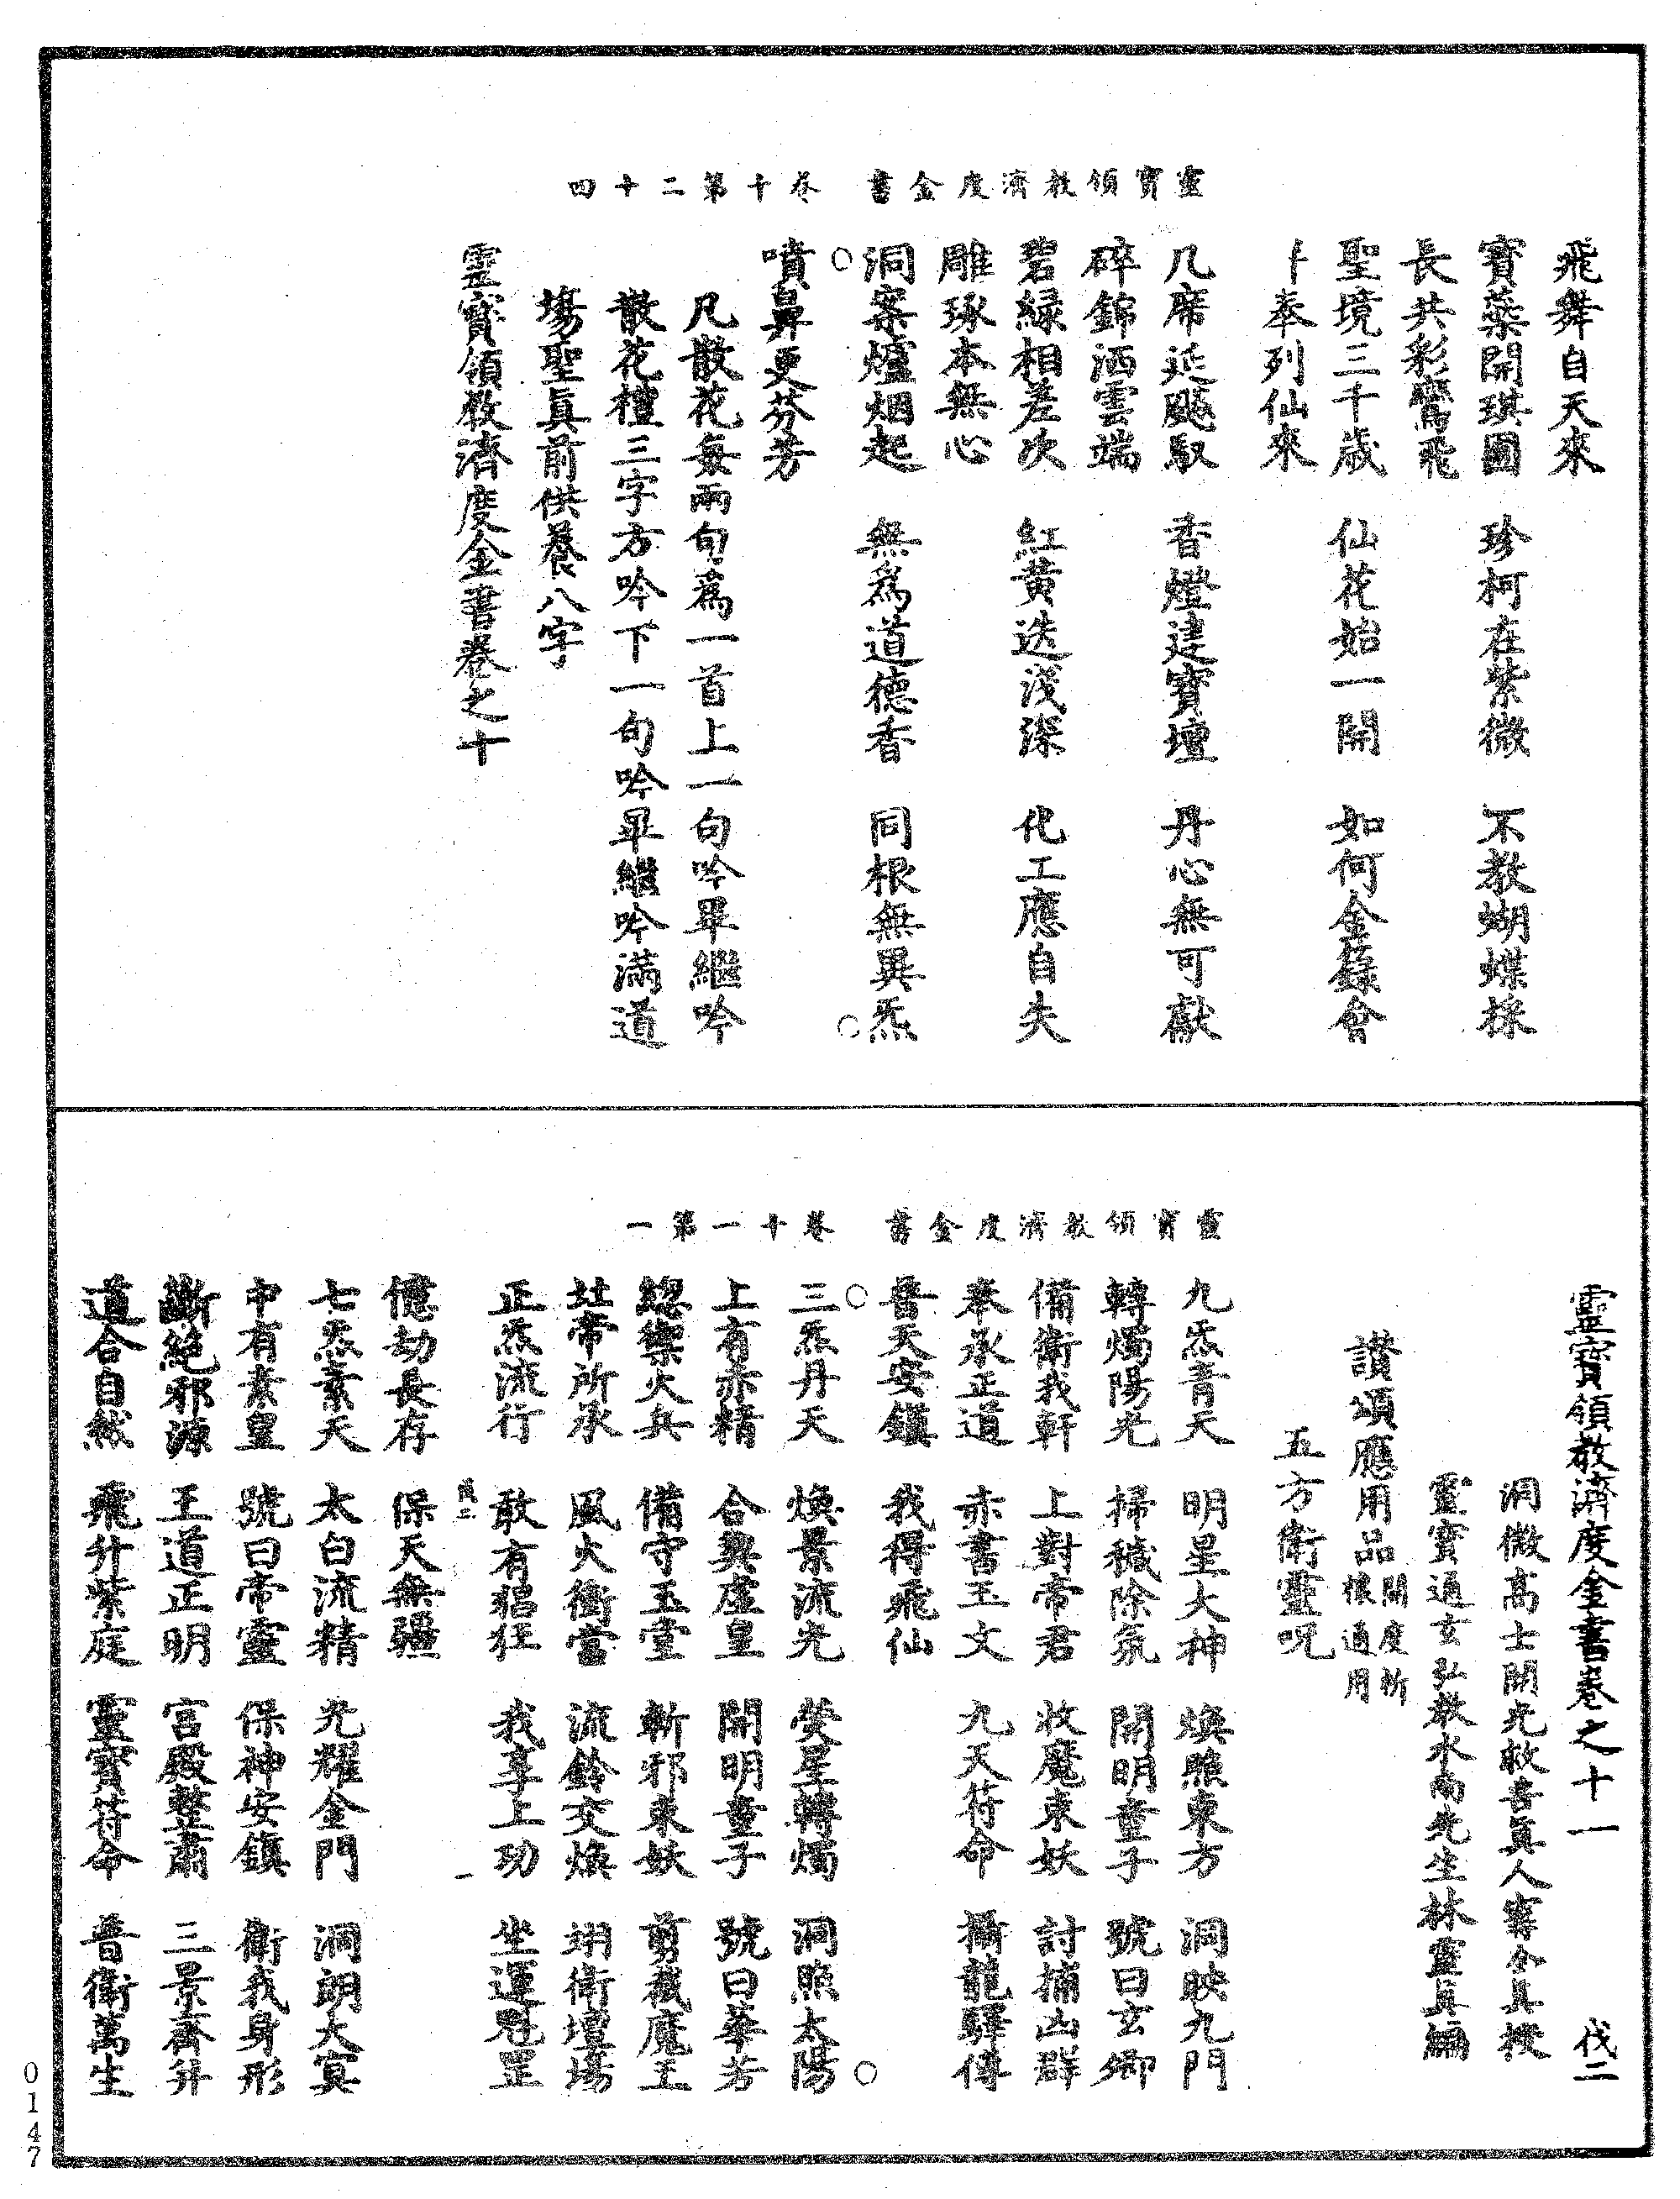 靈寶領教濟度金書　卷十第二十四
飛舞自天來
寶蘂開琪圃　珍柯在紫微　不教蝴蝶採
長共彩鸞飛
聖境三千歲　仙花始一開　如何金籙會
卜奉列仙來
几席延飈馭　香燈建寶壇　丹心無可獻
碎錦洒雲端
碧緑相差次　紅黄迭淺深　化工應自失
雕琢本無心
洞案爐烟起　無爲道德香　同根無異炁
噴鼻更芬芳
凡散花每兩句爲一首上一句吟畢繼吟
散花檀三字方吟下一句吟畢繼吟滿道
場聖眞前供養八字
靈寶領教濟度金書卷之十
靈寶領教濟度金書　卷十一第一
靈寶領教濟度金書卷之十一　伐二
洞微高士開光救苦眞人寗全真授
靈寶通玄弘教水南先生林靈真編
讃頌應用品開度祈禳通用
五方衛靈呪
九炁青天　明星大神　煥照東方　洞映九門
轉燭陽光　掃穢除氛　開明童子　號曰玄卿
備衛我軒　上對帝君　收魔束妖　討捕凶群
奉承正道　赤書玉文　九天符命　攝龍驛傳
普天安鎮　我得飛仙
三炁丹天　煥景流光　熒星轉燭　洞照太陽
上有赤精　合契虛皇　開明童子　號曰華芳
緫禦火兵　備守玉堂　斬邪束妖　剪截魔王
北帝所承　風火衝當　流鈴交煥　翊衛壇場
正炁流行　敢有猖狂　我享上功　坐運魁罡
億劫長存　保天無疆
七炁素天　太白流精　光耀金門　洞朗大冥
中有素皇　號曰帝靈　保神安鎮　衛我身形
斷絶邪源　王道正明　宮殿整肅　三景齊升
道合自然　飛升紫庭　靈寶符命　普衛萬生
0147